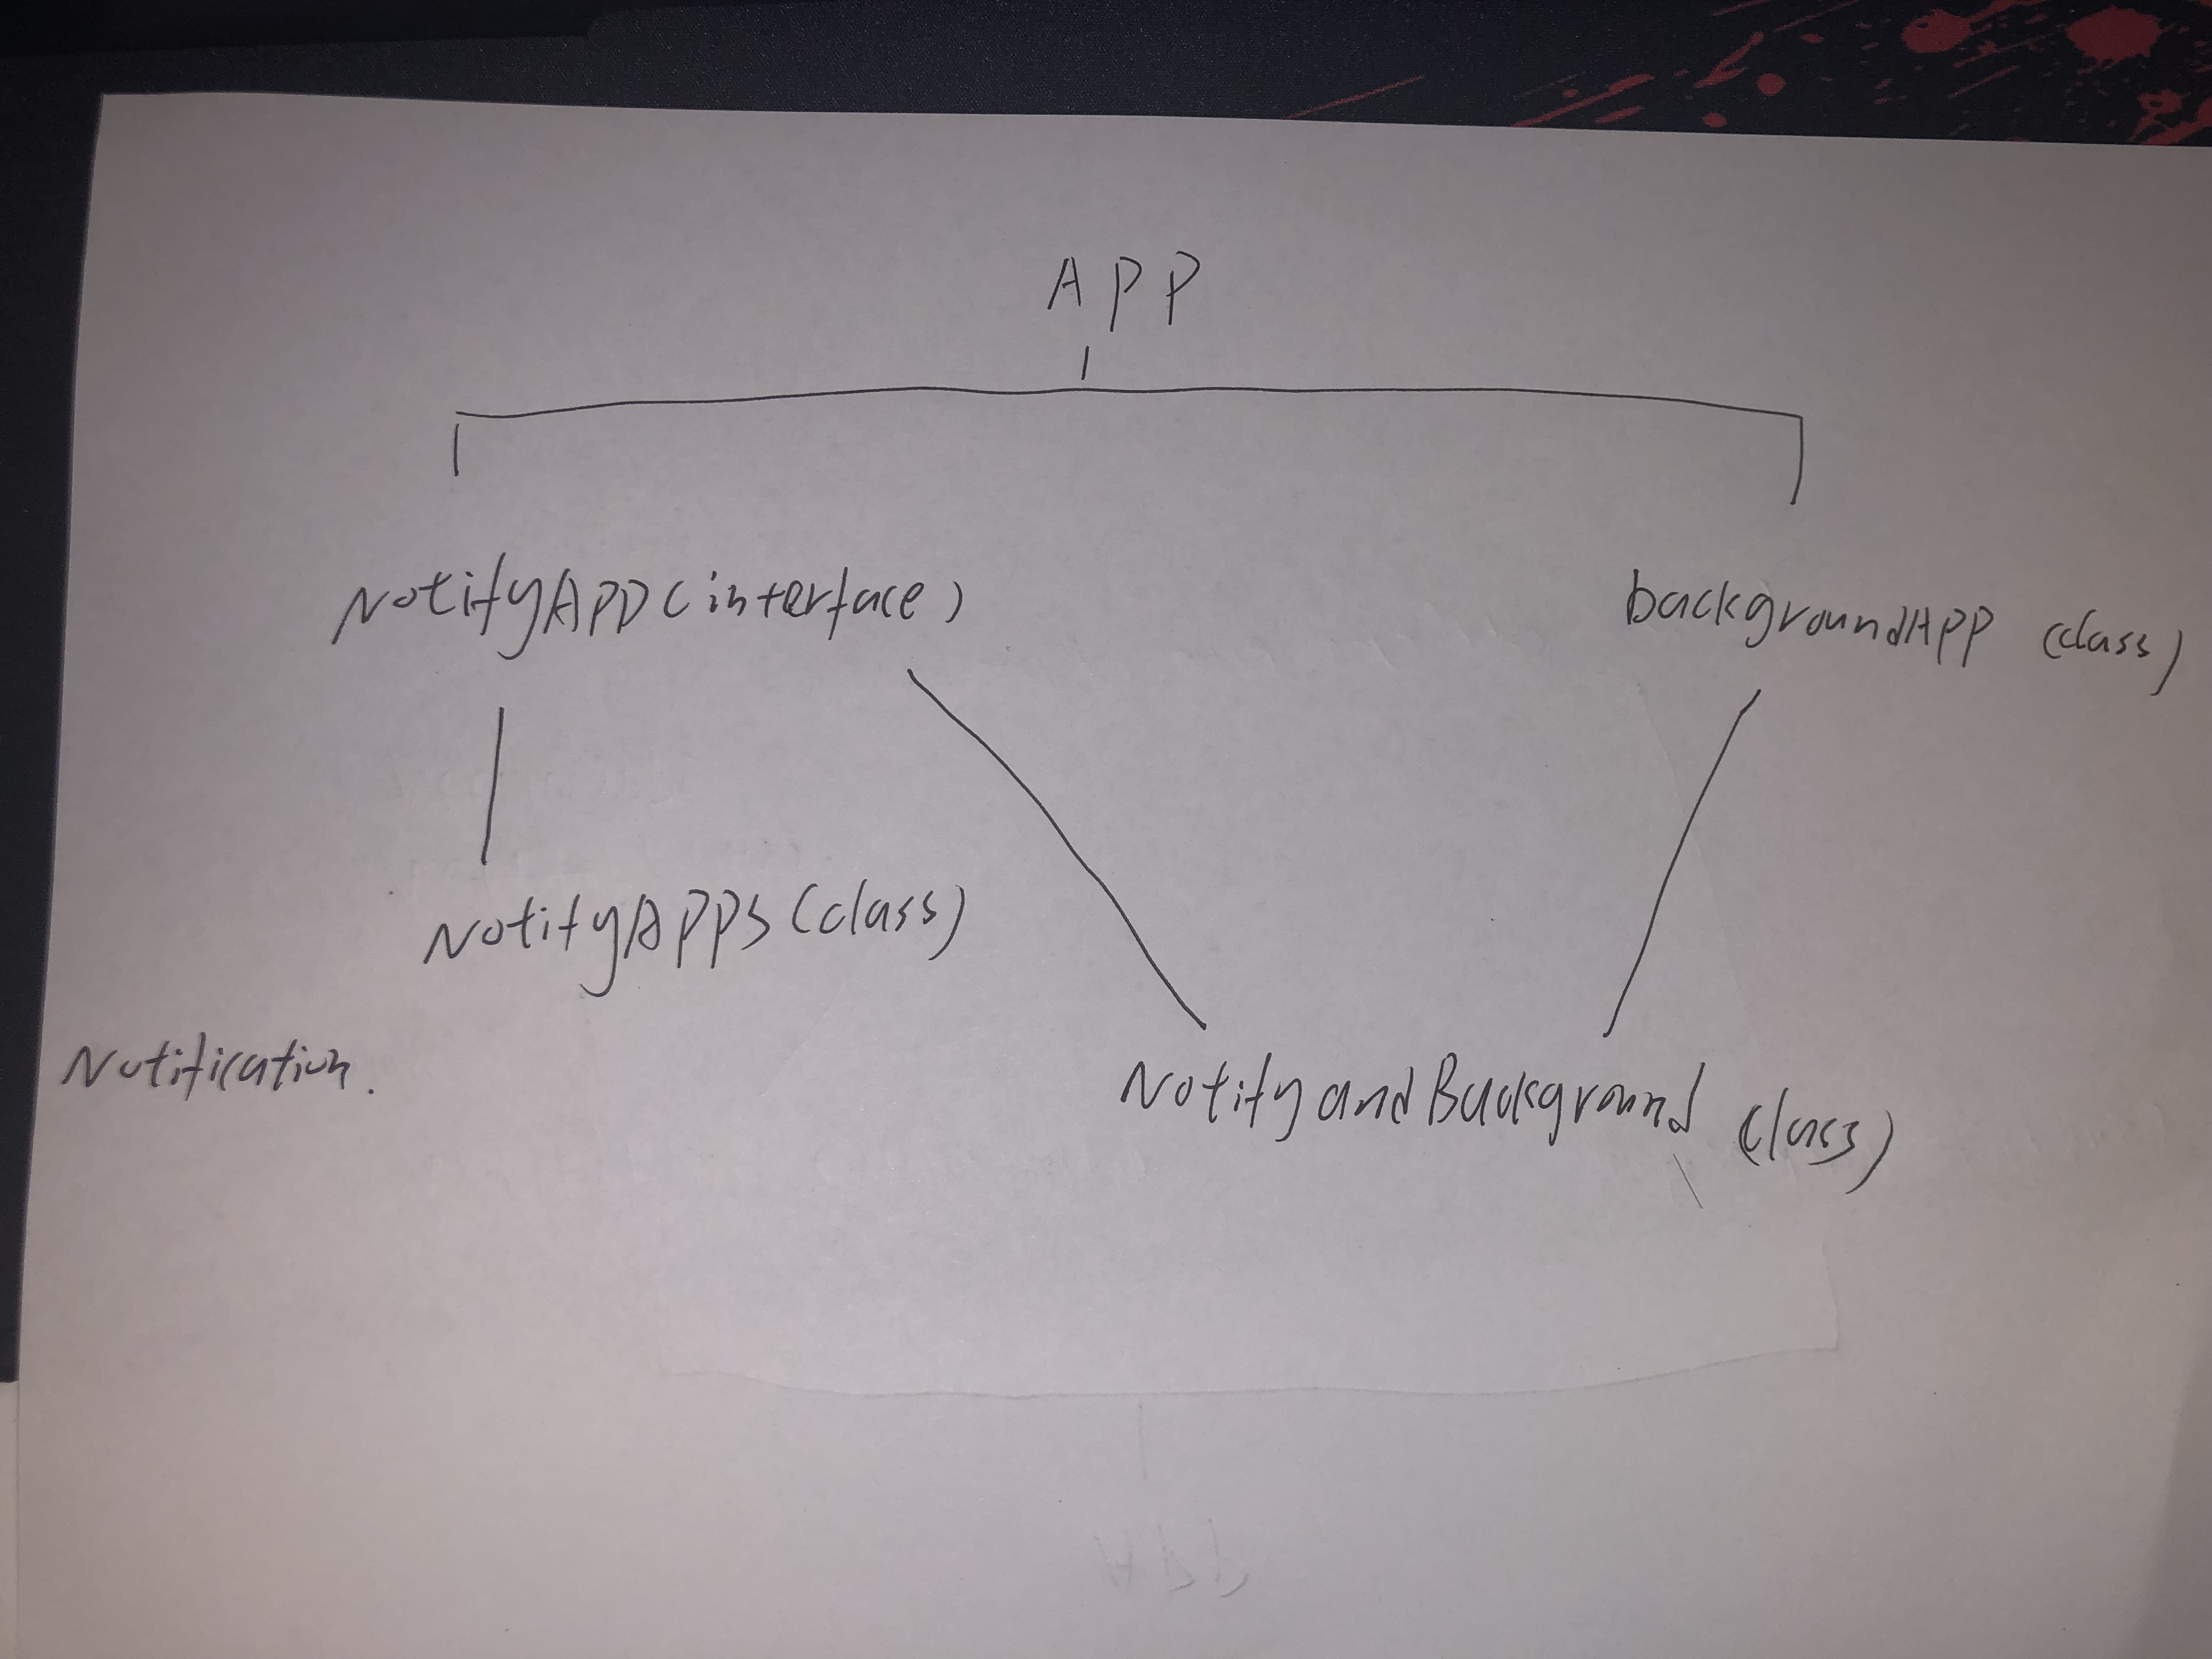 APP
NotifyAPP (interface)
backgroundAPP (class)
NotifyAPPS (class)
Notification.
NotifyandBackground (class)